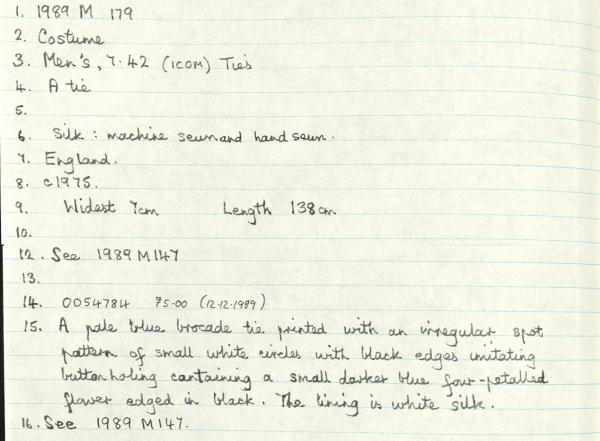 1. 1989 M 179
2. Costume
3. Men's, 7.42 (ICOM) Ties
4. A tie
5.
6. Silk : machine sewn and hand sewn.
7. England.
8. c1975.
9. Widest 7cm Length 138cm
10.
12. See 1989 M147
13.
14. 0054784 75.00 (12.12.1989)
15. A pale blue brocade tie printed with an irregular spot
pattern of small white circles with black edges imitating
buttonholing containing a small darker blue four-petalled
flower edged in black. The lining is white silk.
16. See 1989 M147.